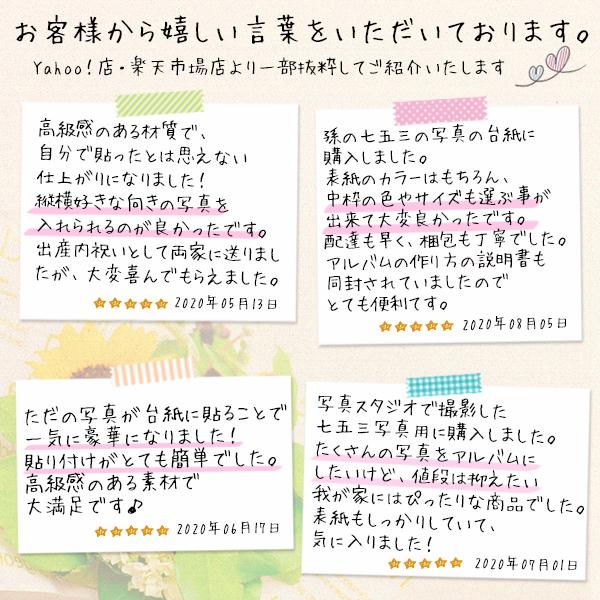 お客様から嬉しい言葉をいただいております。
Yahoo!店・楽天市場店より一部抜粋してご紹介いたします
高級感のある材質で、
自分で貼ったとは思えない
仕上がりになりました!
縦横好きな向きの写真を
入れられるのが良かったです。
出産内祝いとして両家に送りまし
たが、大変喜んでもらえました。
2020年05月13日
孫の七五三の写真の台紙に
購入しました。
表紙のカラーはもちろん、
中枠の色やサイズも選ぶ事が
出来て大変良かったです。
配達も早く、梱包も丁寧でした。
アルバムの作り方の説明書も
同封されていましたので
とても便利です。
2020年08月05日
ただの写真が台紙に貼ることで
一気に豪華になりました!
貼り付けがとても簡単でした。
高級感のある素材で
大満足です♪
2020年06月17日
写真スタジオで撮影した
七五三写真用に購入しました。
たくさんの写真をアルバムに
したいけど、値段は抑えたい
我が家にはぴったりな商品でした。
表紙もしっかりしていて、
気に入りました!
2020年07月01日